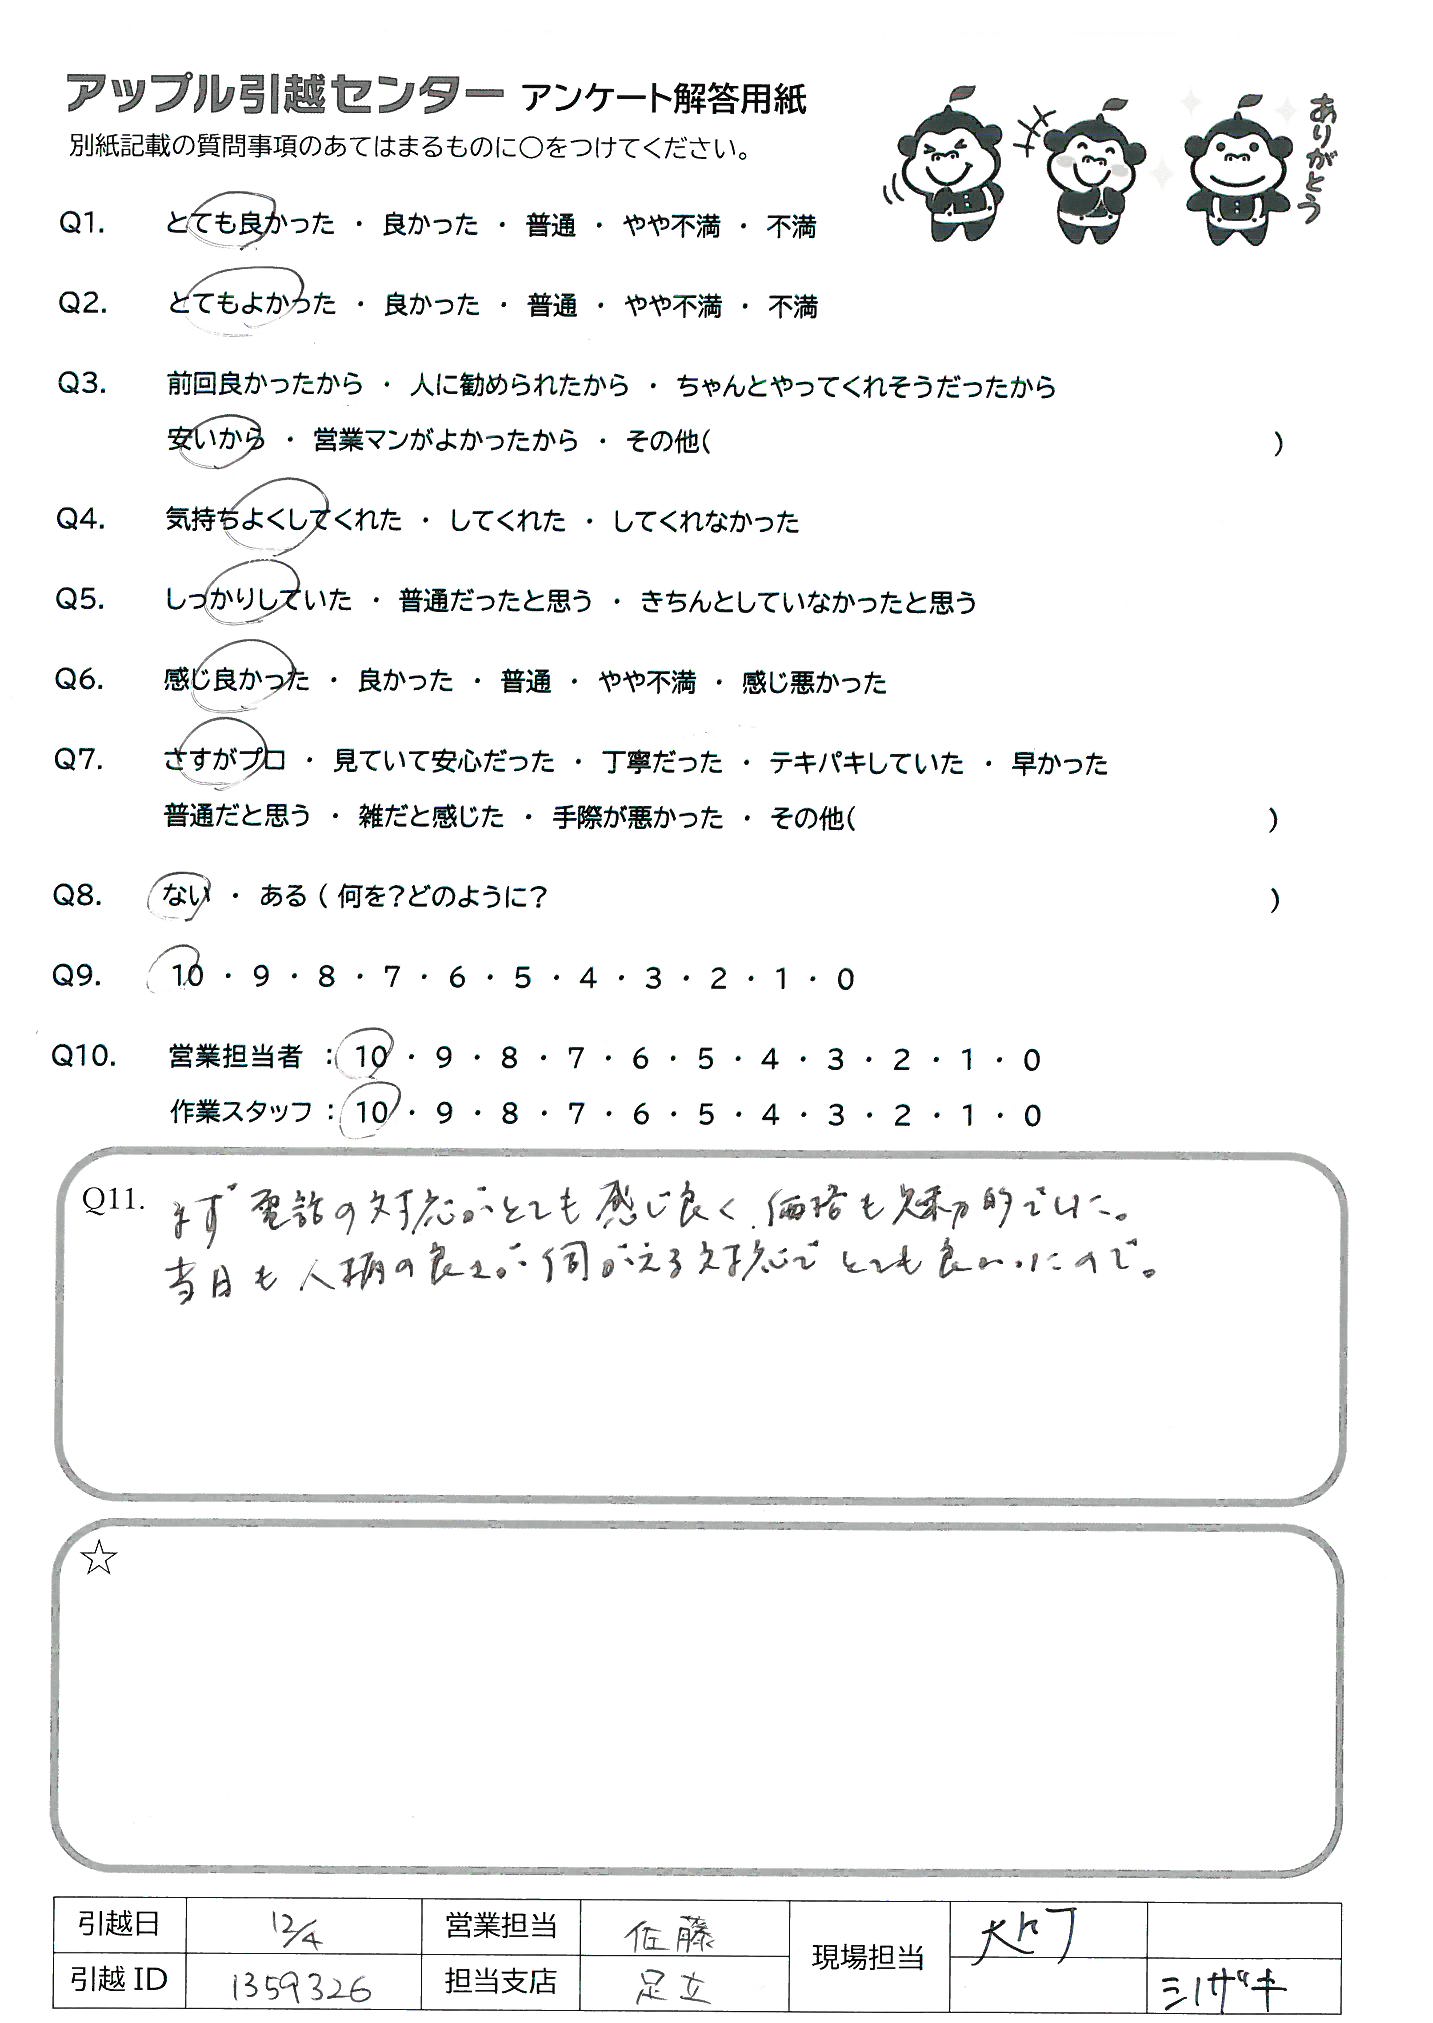 アップル引越センター アンケート解答用紙
別紙記載の質問事項のあてはまるものに〇をつけてください。
ありがとう
Q1. とても良かった ・ 良かった ・ 普通 ・ やや不満 ・ 不満
Q2. とてもよかった ・ 良かった ・ 普通 ・ やや不満 ・ 不満
Q3. 前回良かったから ・ 人に勧められたから ・ ちゃんとやってくれそうだったから
安いから ・ 営業マンがよかったから ・ その他( )
Q4. 気持ちよくしてくれた ・ してくれた ・ してくれなかった
Q5. しっかりしていた ・ 普通だったと思う ・ きちんとしていなかったと思う
Q6. 感じ良かった ・ 良かった ・ 普通 ・ やや不満 ・ 感じ悪かった
Q7. さすがプロ ・ 見ていて安心だった ・ 丁寧だった ・ テキパキしていた ・ 早かった
普通だと思う ・ 雑だと感じた ・ 手際が悪かった ・ その他( )
Q8. ない ・ ある ( 何を?どのように? )
Q9. 10 ・ 9 ・ 8 ・ 7 ・ 6 ・ 5 ・ 4 ・ 3 ・ 2 ・ 1 ・ 0
Q10. 営業担当者 : 10 ・ 9 ・ 8 ・ 7 ・ 6 ・ 5 ・ 4 ・ 3 ・ 2 ・ 1 ・ 0
作業スタッフ : 10 ・ 9 ・ 8 ・ 7 ・ 6 ・ 5 ・ 4 ・ 3 ・ 2 ・ 1 ・ 0
Q11. まず電話の対応がとても感じ良く、価格も魅力的でした。
当日も人柄の良さが伺がえる対応でとても良かったので。
☆
引越日 12/4 営業担当 佐藤 現場担当
引越 ID 1359326 担当支店 足立 シノザキ